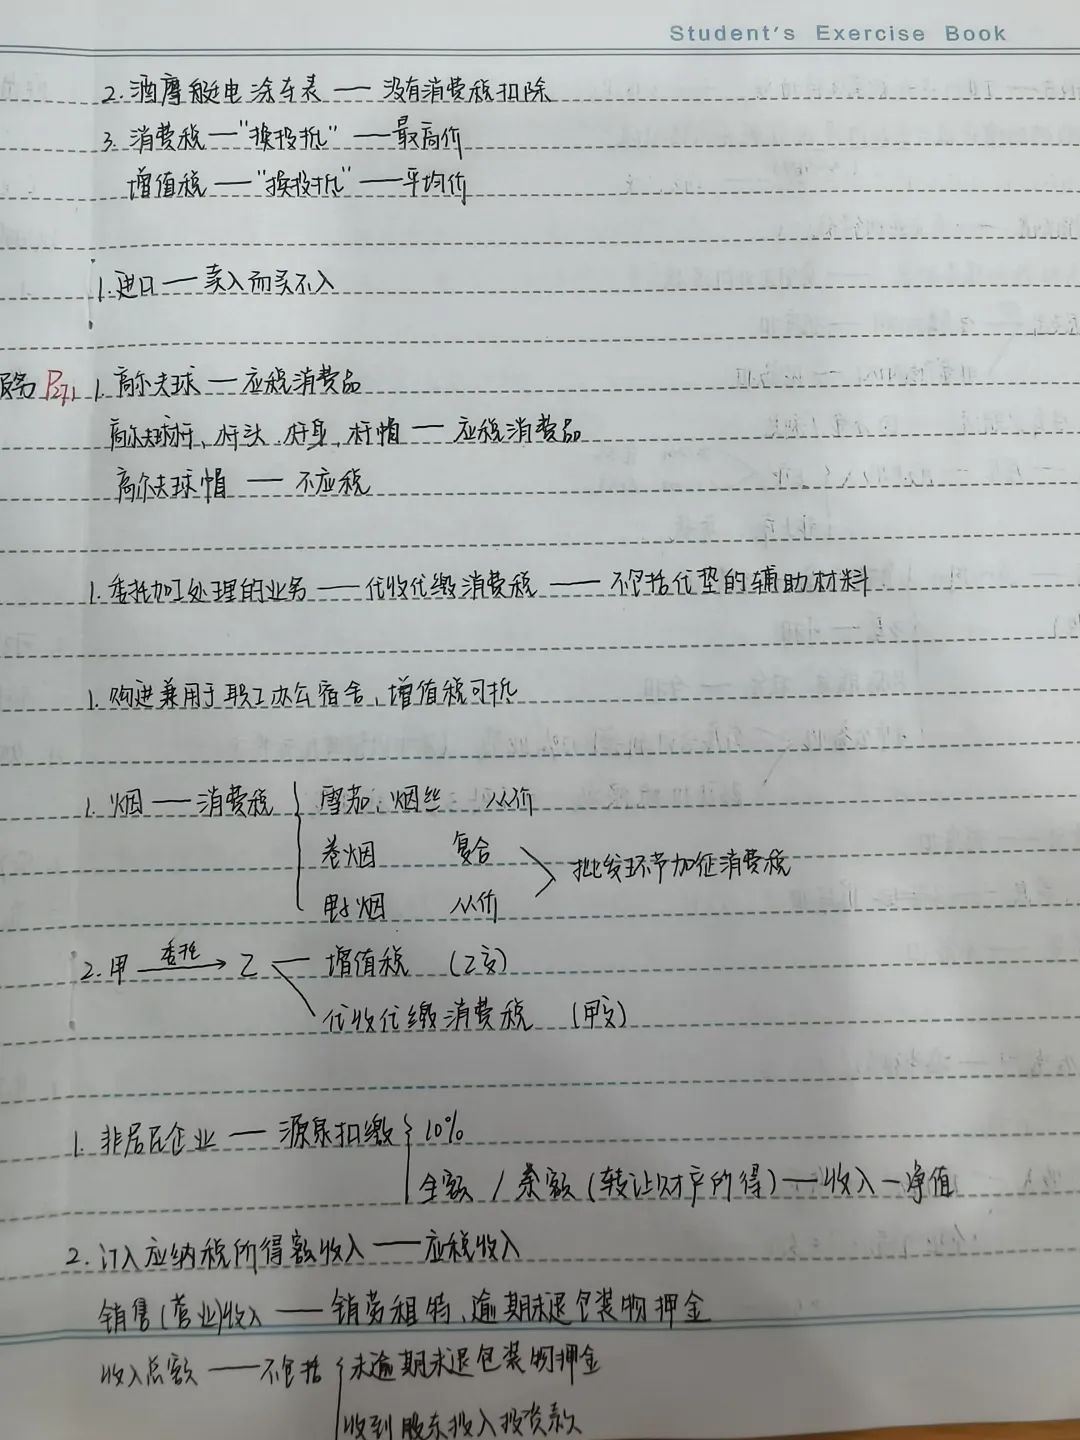 Student's Exercise Book
2. 酒摩艇电涂车表 — 没有消费税扣除
3. 消费税 — "换投抵" — 最高价
增值税 — "换投抵" — 平均价
1. 进口 — 卖入而买不入
P271 1. 高尔夫球 — 应税消费品
高尔夫球杆、杆头、杆身、杆帽 — 应税消费品
高尔夫球帽 — 不应税
1. 委托加工处理的业务 — 代收代缴消费税 — 不包括代垫的辅助材料
1. 购进兼用于职工办公宿舍,增值税可抵
1. 烟 — 消费税 { 雪茄、烟丝 从价
卷烟 复合
电子烟 从价
> 批发环节加征消费税
2. 甲 委托→ 乙 — 增值税 (乙交)
代收代缴消费税 (甲交)
1. 非居民企业 — 源泉扣缴 { 10%
全额 / 余额 (转让财产所得) — 收入 - 净值
2. 计入应纳税所得额收入 — 应税收入
销售(营业)收入 — 销劳租特、逾期未退包装物押金
收入总额 — 不包括 { 未逾期未退包装物押金
收到股东投入投资款